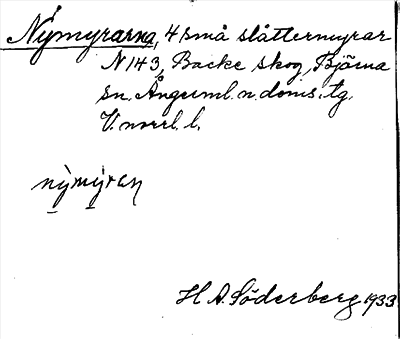 Nymyrarna, 4 små slåttermyrar
N 143, Backe skog, Björna
sn. Ångerml. n. doms. tg.
V. norrl. l.
nỳmýran
H A. Söderberg 1933